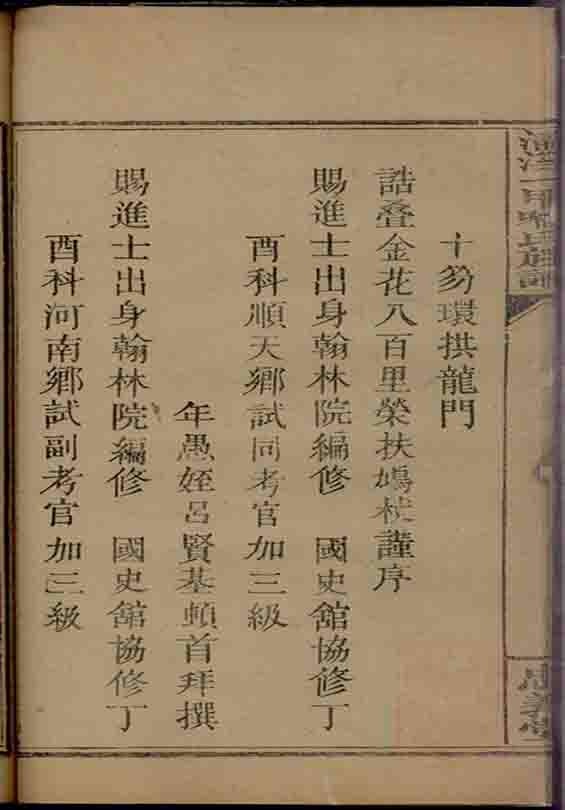 十芴環拱龍門
誥叠金花八百里榮扶鳩杖謹序
賜進士出身翰林院編修 國史舘協修丁
酉科順天鄉試同考官加三級
年愚姪呂賢基頓首拜撰
賜進士出身翰林院編修 國史舘協修丁
酉科河南鄉試副考官加三級
氏族譜
忠義堂